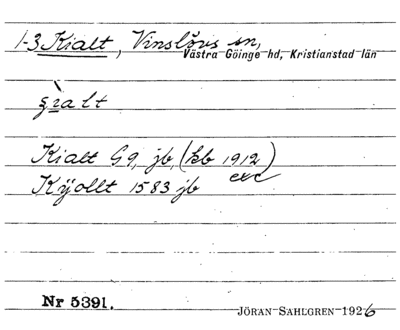 1-3 Kialt, Vinslövs sn,
Västra Göinge hd, Kristianstad län
Kialt G9, jb, (kb 1912)
exc
Kÿollt 1583 jb
Nr 5391.
JÖRAN SAHLGREN 1926